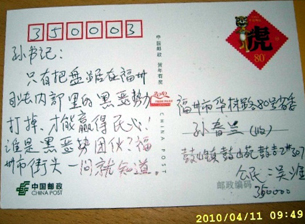 350003
孙书记：
只有把盘踞在福州
司法内部里的黑恶势力
打掉，才能赢得民心！
谁是黑恶势团伙？福
州市街头一问就知道。
中国邮政
CHINA POST
中国邮政 贺年有奖
虎
80
福州市华林路80号省委
孙春兰（收）
公民
邮政编码
350000
2010/04/11 09:49